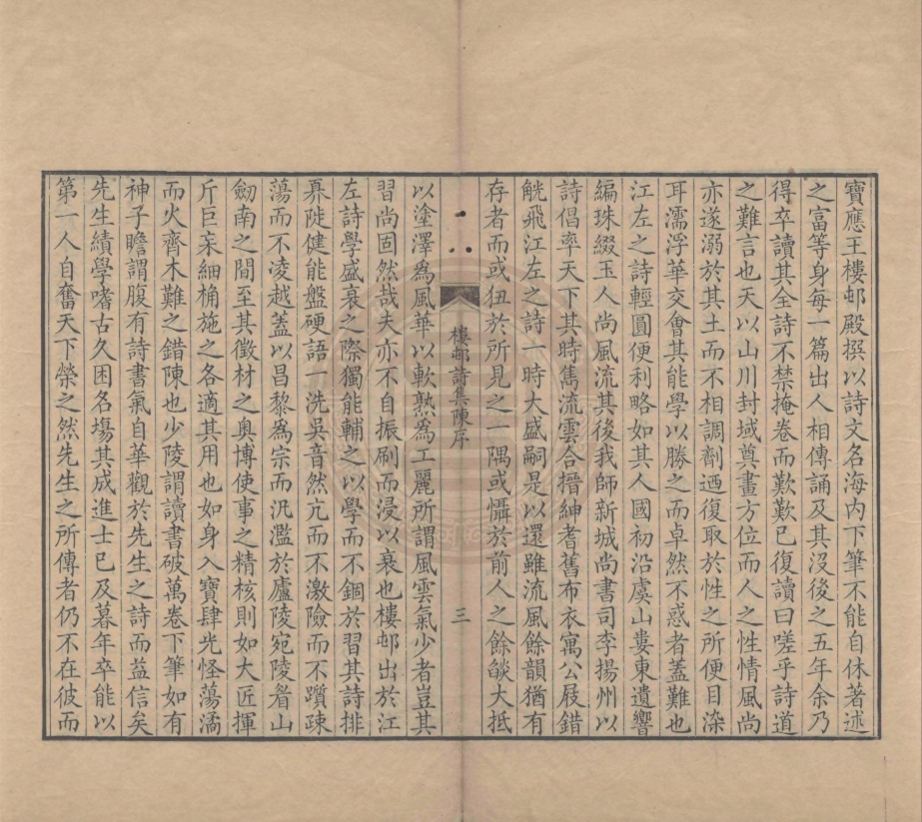 寶應王樓邨殿撰以詩文名海内下筆不能自休著述
之富等身每一篇出人相傳誦及其沒後之五年余乃
得卒讀其全詩不禁掩卷而歎歎已復讀曰嗟乎詩道
之難言也天以山川封域奠畫方位而人之性情風尚
亦遂溺於其土而不相調劑迺復取於性之所便目染
耳濡浮華交會其能學以勝之而卓然不惑者蓋難也
江左之詩輕圓便利略如其人國初沿虞山婁東遺響
編珠綴玉人尚風流其後我師新城尚書司李揚州以
詩倡率天下其時雋流雲合搢紳耆舊布衣寓公屐錯
觥飛江左之詩一時大盛嗣是以還雖流風餘韻猶有
存者而或狃於所見之一隅或懾於前人之餘燄大抵
樓邨詩集陳序
三
以塗澤爲風華以軟熟爲工麗所謂風雲氣少者豈其
習尚固然哉夫亦不自振刷而浸以衰也樓邨出於江
左詩學盛衰之際獨能輔之以學而不錮於習其詩排
奡陡健能盤硬語一洗吳音然亢而不激險而不躓疎
蕩而不凌越蓋以昌黎爲宗而汎濫於廬陵宛陵眉山
劒南之間至其徵材之奧博使事之精核則如大匠揮
斤巨宲細桷施之各適其用也如身入寶肆光怪蕩潏
而火齊木難之錯陳也少陵謂讀書破萬卷下筆如有
神子瞻謂腹有詩書氣自華觀於先生之詩而益信矣
先生績學嗜古久困名塲其成進士已及暮年卒能以
第一人自奮天下榮之然先生之所傳者仍不在彼而